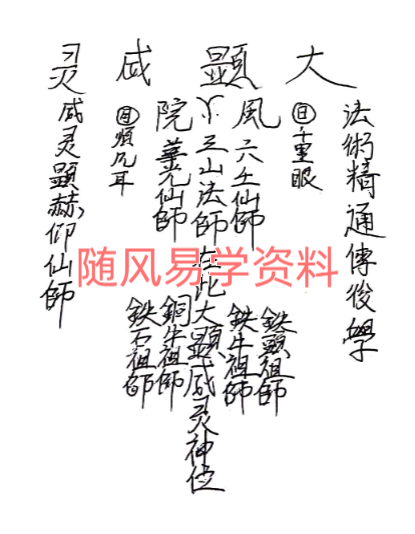 大顯威灵
法術精通傳後學
㊐千里眼
風六壬仙師
鉄頭祖師
鉄牛祖師
五山法師在此大顯威灵神位
院華光仙師
銅牛祖師
鉄石祖師
順风耳
威灵顯赫仰仙師
随风易学资料